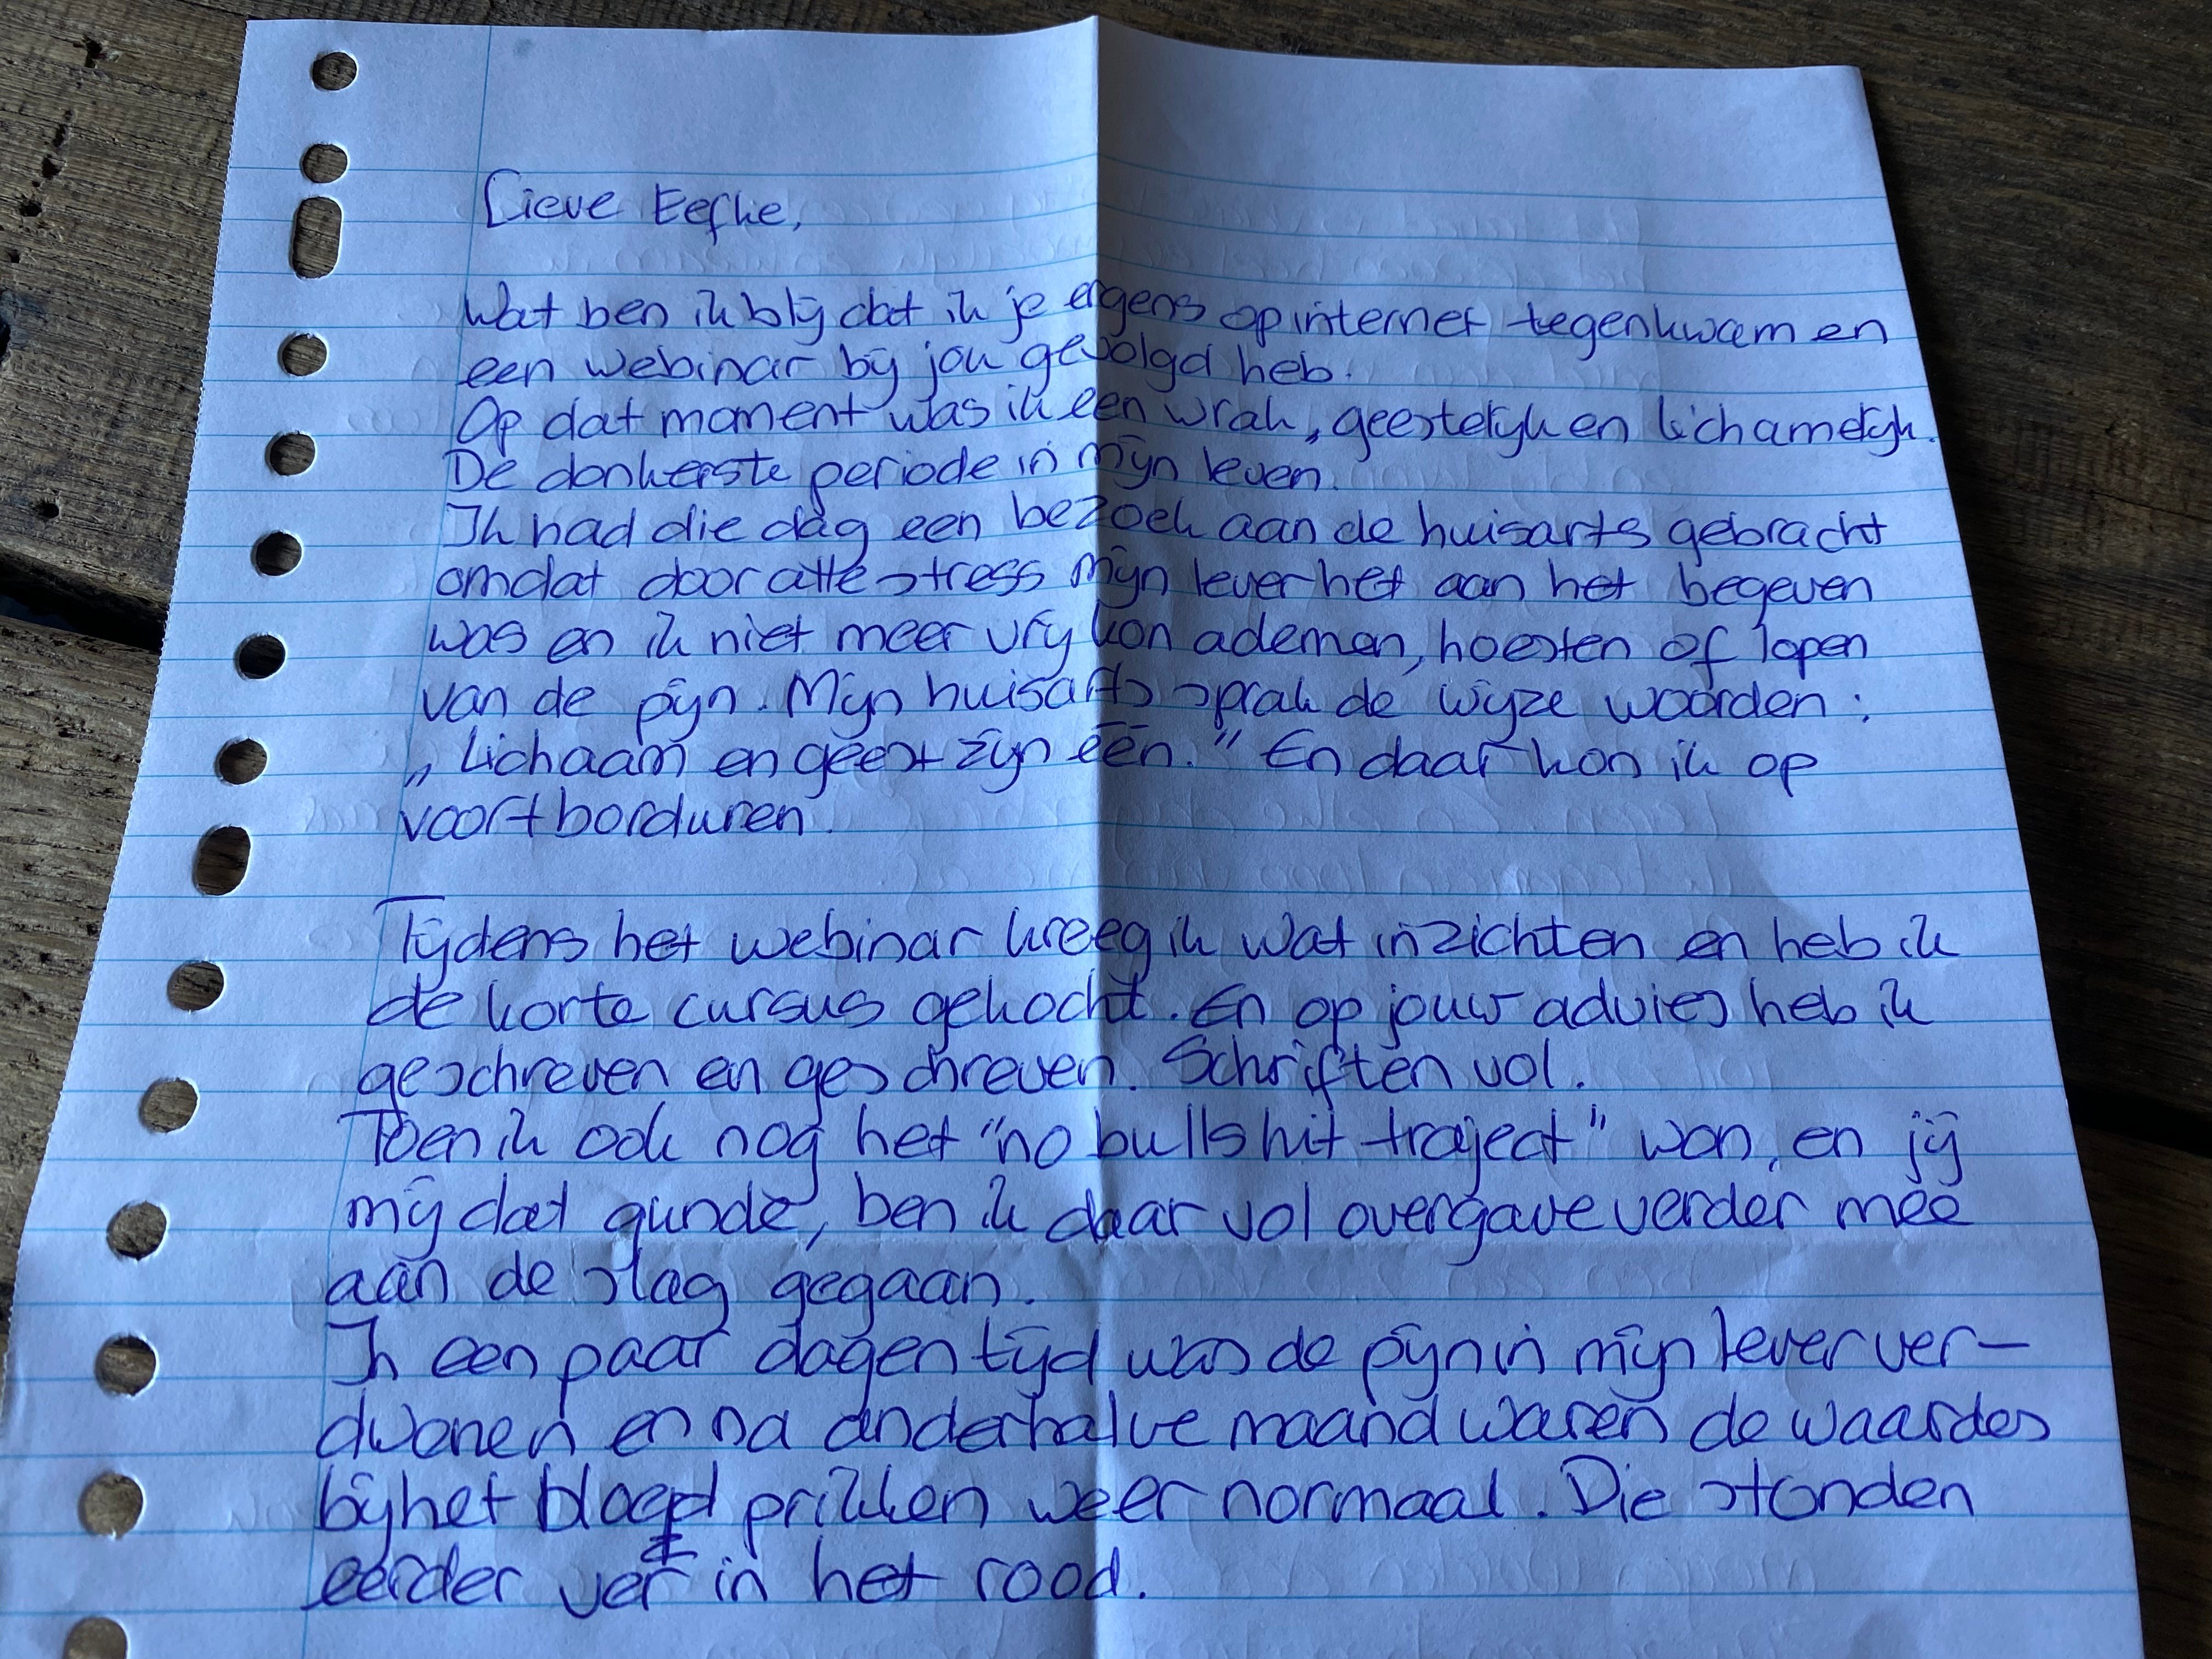 Lieve Eefke,
Wat ben ik blij dat ik je ergens op internet tegenkwam en
een webinar bij jou gevolgd heb.
Op dat moment was ik een wrak, geestelijk en lichamelijk.
De donkerste periode in mijn leven.
Ik had die dag een bezoek aan de huisarts gebracht
omdat door alle stress mijn lever het aan het begeven
was en ik niet meer vrij kon ademen, hoesten of lopen
van de pijn. Mijn huisarts sprak de wijze woorden:
„Lichaam en geest zijn één.” En daar kon ik op
voortborduren.
Tijdens het webinar kreeg ik wat inzichten en heb ik
de korte cursus gekocht. En op jouw advies heb ik
geschreven en geschreven. Schriften vol.
Toen ik ook nog het "no bullshit traject" won, en jij
mij dat gunde, ben ik daar vol overgave verder mee
aan de slag gegaan.
In een paar dagen tijd was de pijn in mijn lever ver-
dwenen en na anderhalve maand waren de waardes
bij het bloed prikken weer normaal. Die stonden
eerder ver in het rood.